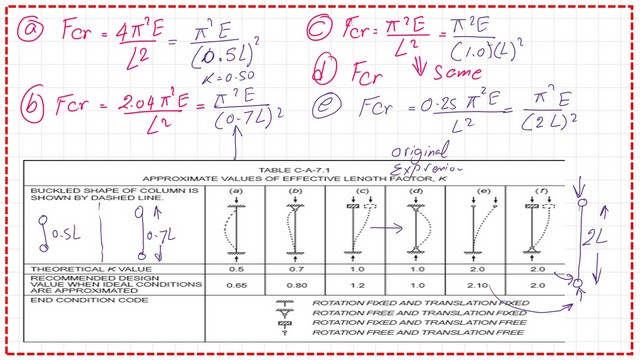 (a) Fcr = 4π²E / L² = π²E / (0.5L)²
K=0.50
(b) Fcr = 2.04π²E / L² = π²E / (0.7L)²
(c) Fcr = π²E / L² = π²E / (1.0)(L)²
(d) Fcr ⇓ Same
(e) Fcr = 0.25 π²E / L² = π²E / (2L)²
original
Exprenion
TABLE C-A-7.1
APPROXIMATE VALUES OF EFFECTIVE LENGTH FACTOR, K
BUCKLED SHAPE OF COLUMN IS
SHOWN BY DASHED LINE.
(a) (b) (c) (d) (e) (f)
0.5L 0.7L
2L
THEORETICAL K VALUE 0.5 0.7 1.0 1.0 2.0 2.0
RECOMMENDED DESIGN
VALUE WHEN IDEAL CONDITIONS
ARE APPROXIMATED
0.65 0.80 1.2 1.0 2.10 2.0
END CONDITION CODE
ROTATION FIXED AND TRANSLATION FIXED
ROTATION FREE AND TRANSLATION FIXED
ROTATION FIXED AND TRANSLATION FREE
ROTATION FREE AND TRANSLATION FREE